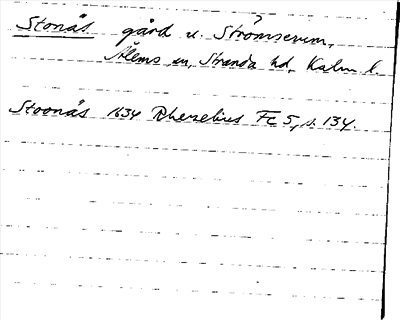 ?
Stonäs gård u. Strömserum,
Ålems sn, Stranda hd, Kalm. l.
Stoonäs 1634 Rhezelius Fc 5, s. 134.